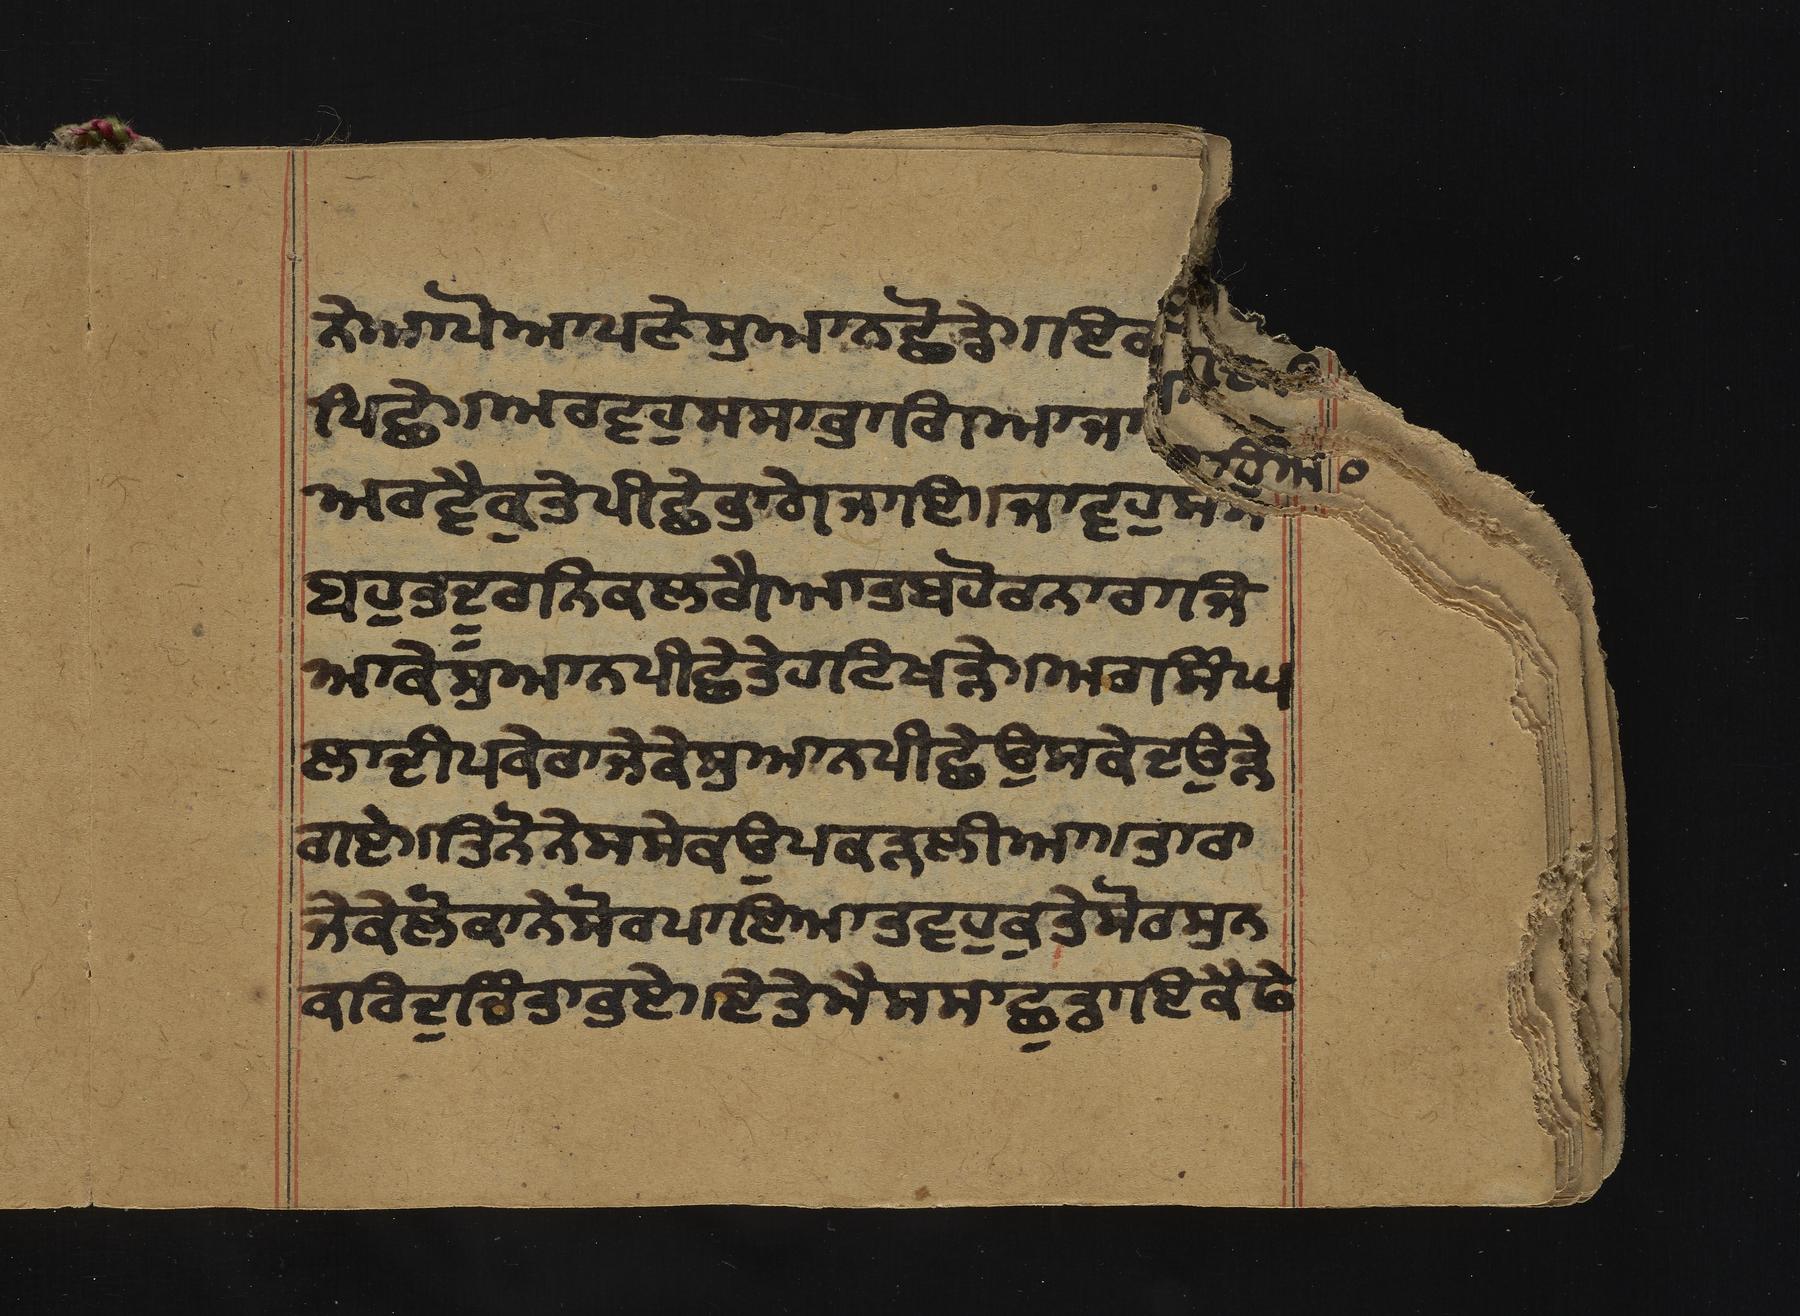 ਨੇਆਪੋਆਪਣੇਸੁਆਨਛੋੜੇ।ਇਕ
ਪਿਛੇ।ਅਰਵਹੁਸਸਾਭਾਗਿਆਜਾ
ਅਰਵੈਕੁਤੇਪੀਛੇਭਾਗੇਜਾਇ।ਜਾਵਹੁਸਸ
ਬਹੁਤਦੂਰਨਿਕਲਗੈਆਤਬਹੋਰਨਾਰਾਜਿ
ਆਕੇਸੁਆਨਪੀਛੇਤੇਹਟਿਖੜੇ।ਅਰਸਿੰਘ
ਲਾਦੀਪਕੇਰਾਜੇਕੇਸੁਆਨਪੀਛੇਉਸਕੇਦਉੜੇ
ਗਏ।ਤਿਨੋਨੇਸਸੇਕਉਪਕੜਲੀਆ।ਤਾਰਾ
ਜੇਕੇਲੋਕਾਨੇਸੋਰਪਾਇਆਤਵਹੁਕੁਤੇਸੋਰਸੁਨ
ਕਰਿਦੁਚਿੰਤਾਹੁਏ।ਏਤੇਮੈਸਸਾਛੁਡਾਇਕੈਫੇ